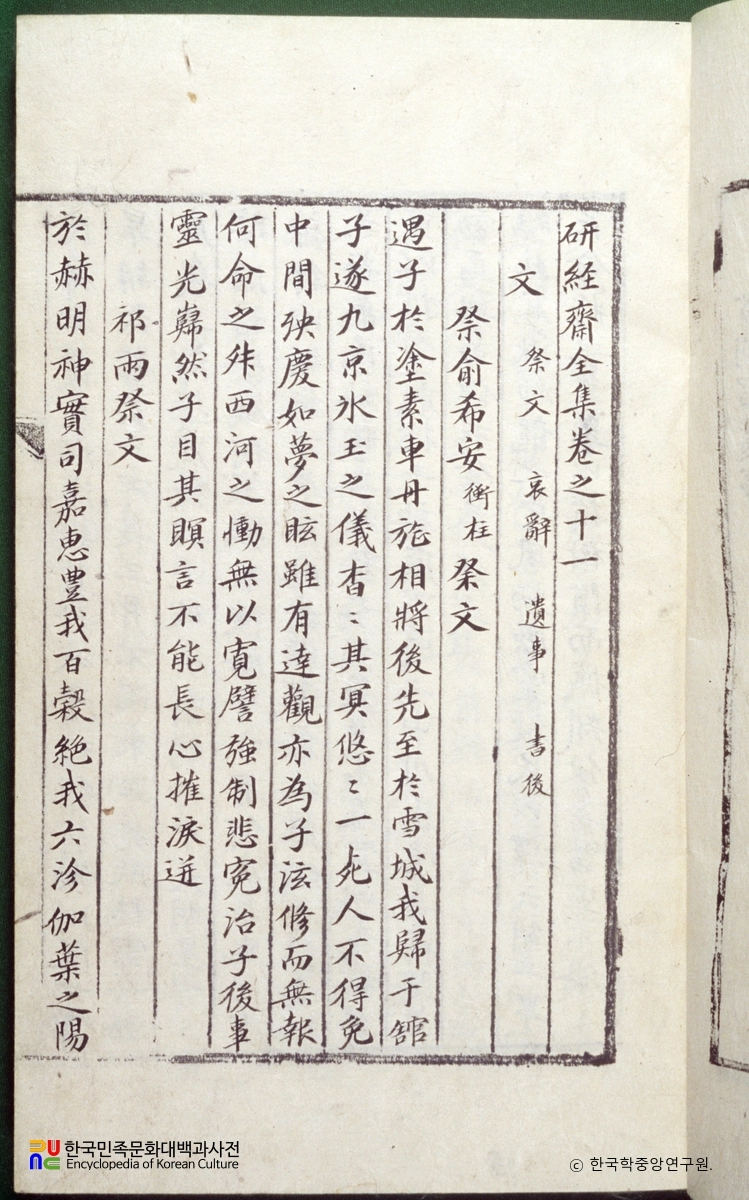 研經齋全集卷之十一
文 祭文 哀辭 遺事 書後
祭俞希安衡柱祭文
遇子於塗素車丹旐相將後先至於雪城我歸于舘
子遂九京氷玉之儀杳〻其冥悠〻一死人不得免
中間殃慶如夢之眩雖有達觀亦為子泫修而無報
何命之舛西河之慟無以寬譬強制悲寃治子後事
靈光巋然子目其瞑言不能長心摧淚迸
祈雨祭文
於赫明神實司嘉惠豊我百糓絶我六沴伽葉之陽
한국민족문화대백과사전
Encyclopedia of Korean Culture
ⓒ 한국학중앙연구원.